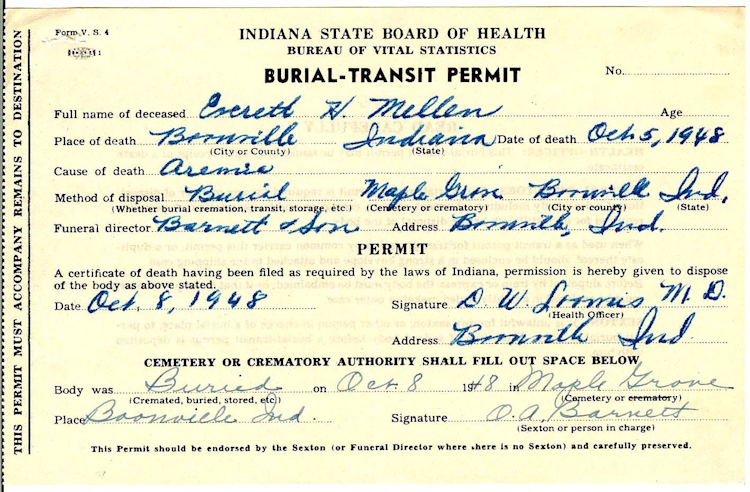 Form V. S. 4
INDIANA STATE BOARD OF HEALTH
BUREAU OF VITAL STATISTICS
BURIAL-TRANSIT PERMIT
No.
Full name of deceased Everett H. Mellen Age
Place of death Boonville Indiana Date of death Oct. 5, 1948
(City or County) (State)
Cause of death Aremia
Method of disposal Burial Maple Grove Boonville Ind.
(Whether burial cremation, transit, storage, etc.) (Cemetery or crematory) (City or county) (State)
Funeral director Barnett & Son Address Boonville, Ind.
PERMIT
A certificate of death having been filed as required by the laws of Indiana, permission is hereby given to dispose
of the body as above stated.
Date Oct. 8, 1948 Signature D. W. Loomis M. D.
(Health Officer)
Address Boonville Ind
CEMETERY OR CREMATORY AUTHORITY SHALL FILL OUT SPACE BELOW
Body was Buried on Oct. 8 1948 in Maple Grove
(Cremated, buried, stored, etc.) (Cemetery or crematory)
Place Boonville Ind. Signature O. A. Barnett
(Sexton or person in charge)
This Permit should be endorsed by the Sexton (or Funeral Director where there is no Sexton) and carefully preserved.
THIS PERMIT MUST ACCOMPANY REMAINS TO DESTINATION